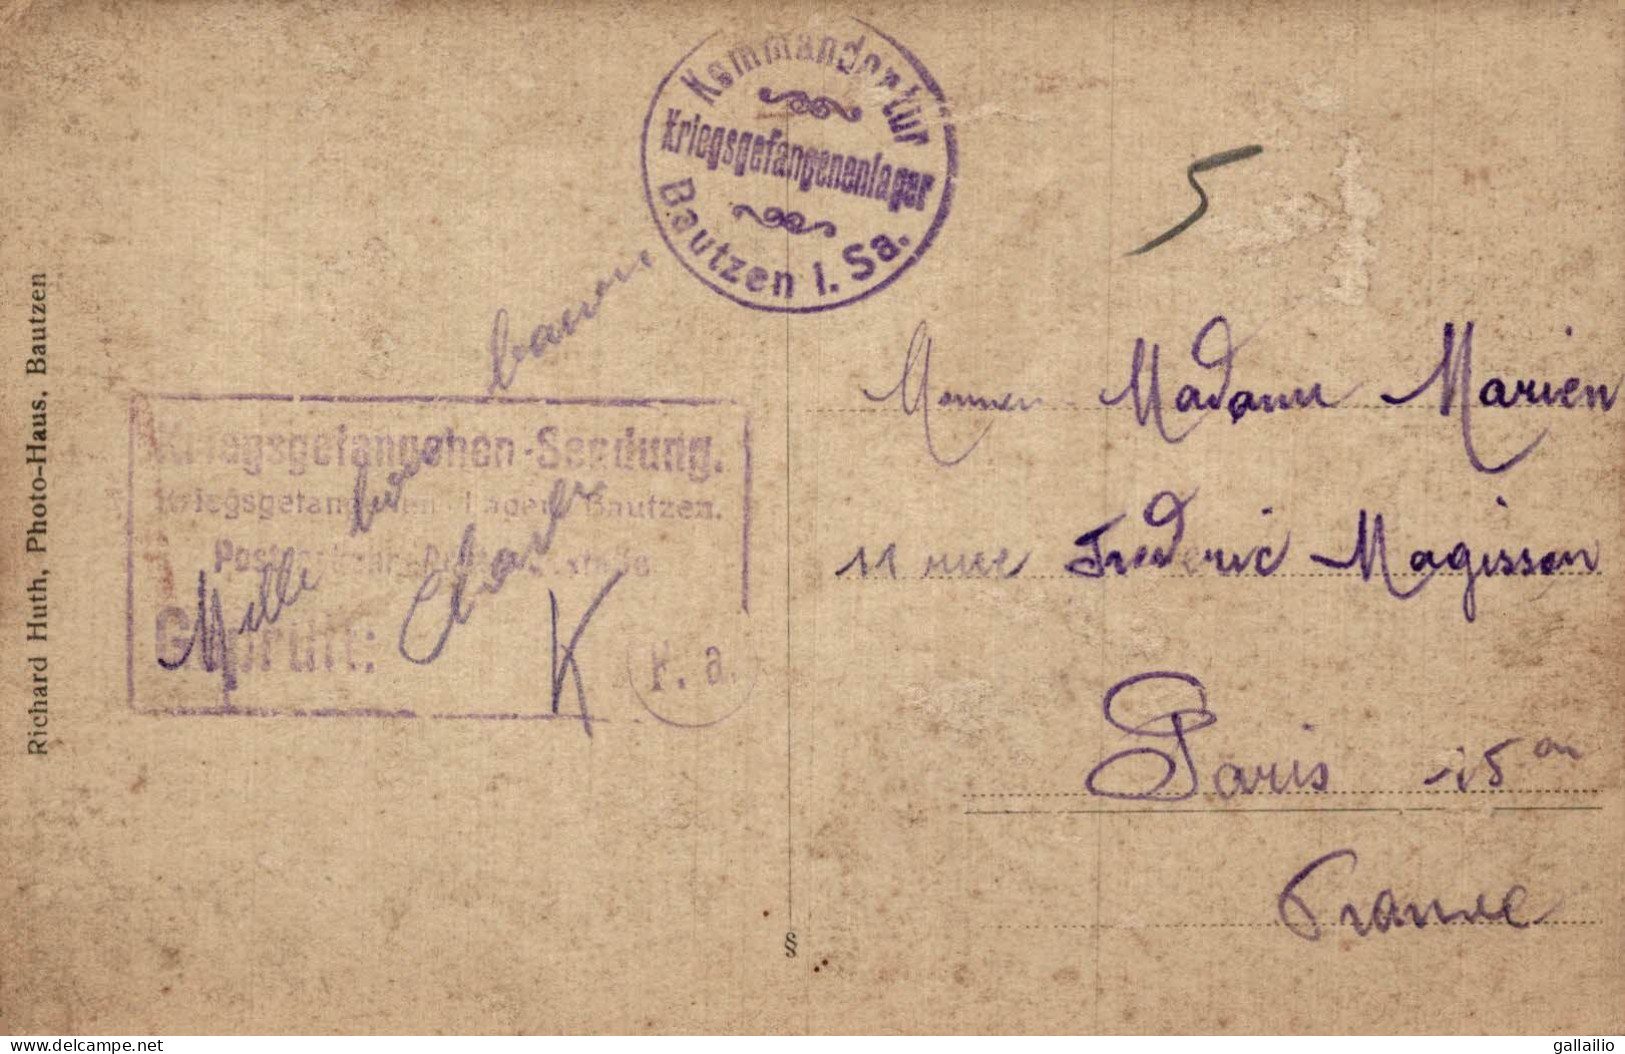 Kommandantur
Kriegsgefangenenlager
Bautzen i. Sa.
5
Richard Huth, Photo-Haus, Bautzen
Kriegsgefangenen-Sendung.
Kriegsgefangenen-Lager Bautzen.
Geprüft:
P. a.
K
Mille
Madame Marien
11 rue Frederic Magisson
Paris 15
France
§
delcampe.net
gallailio